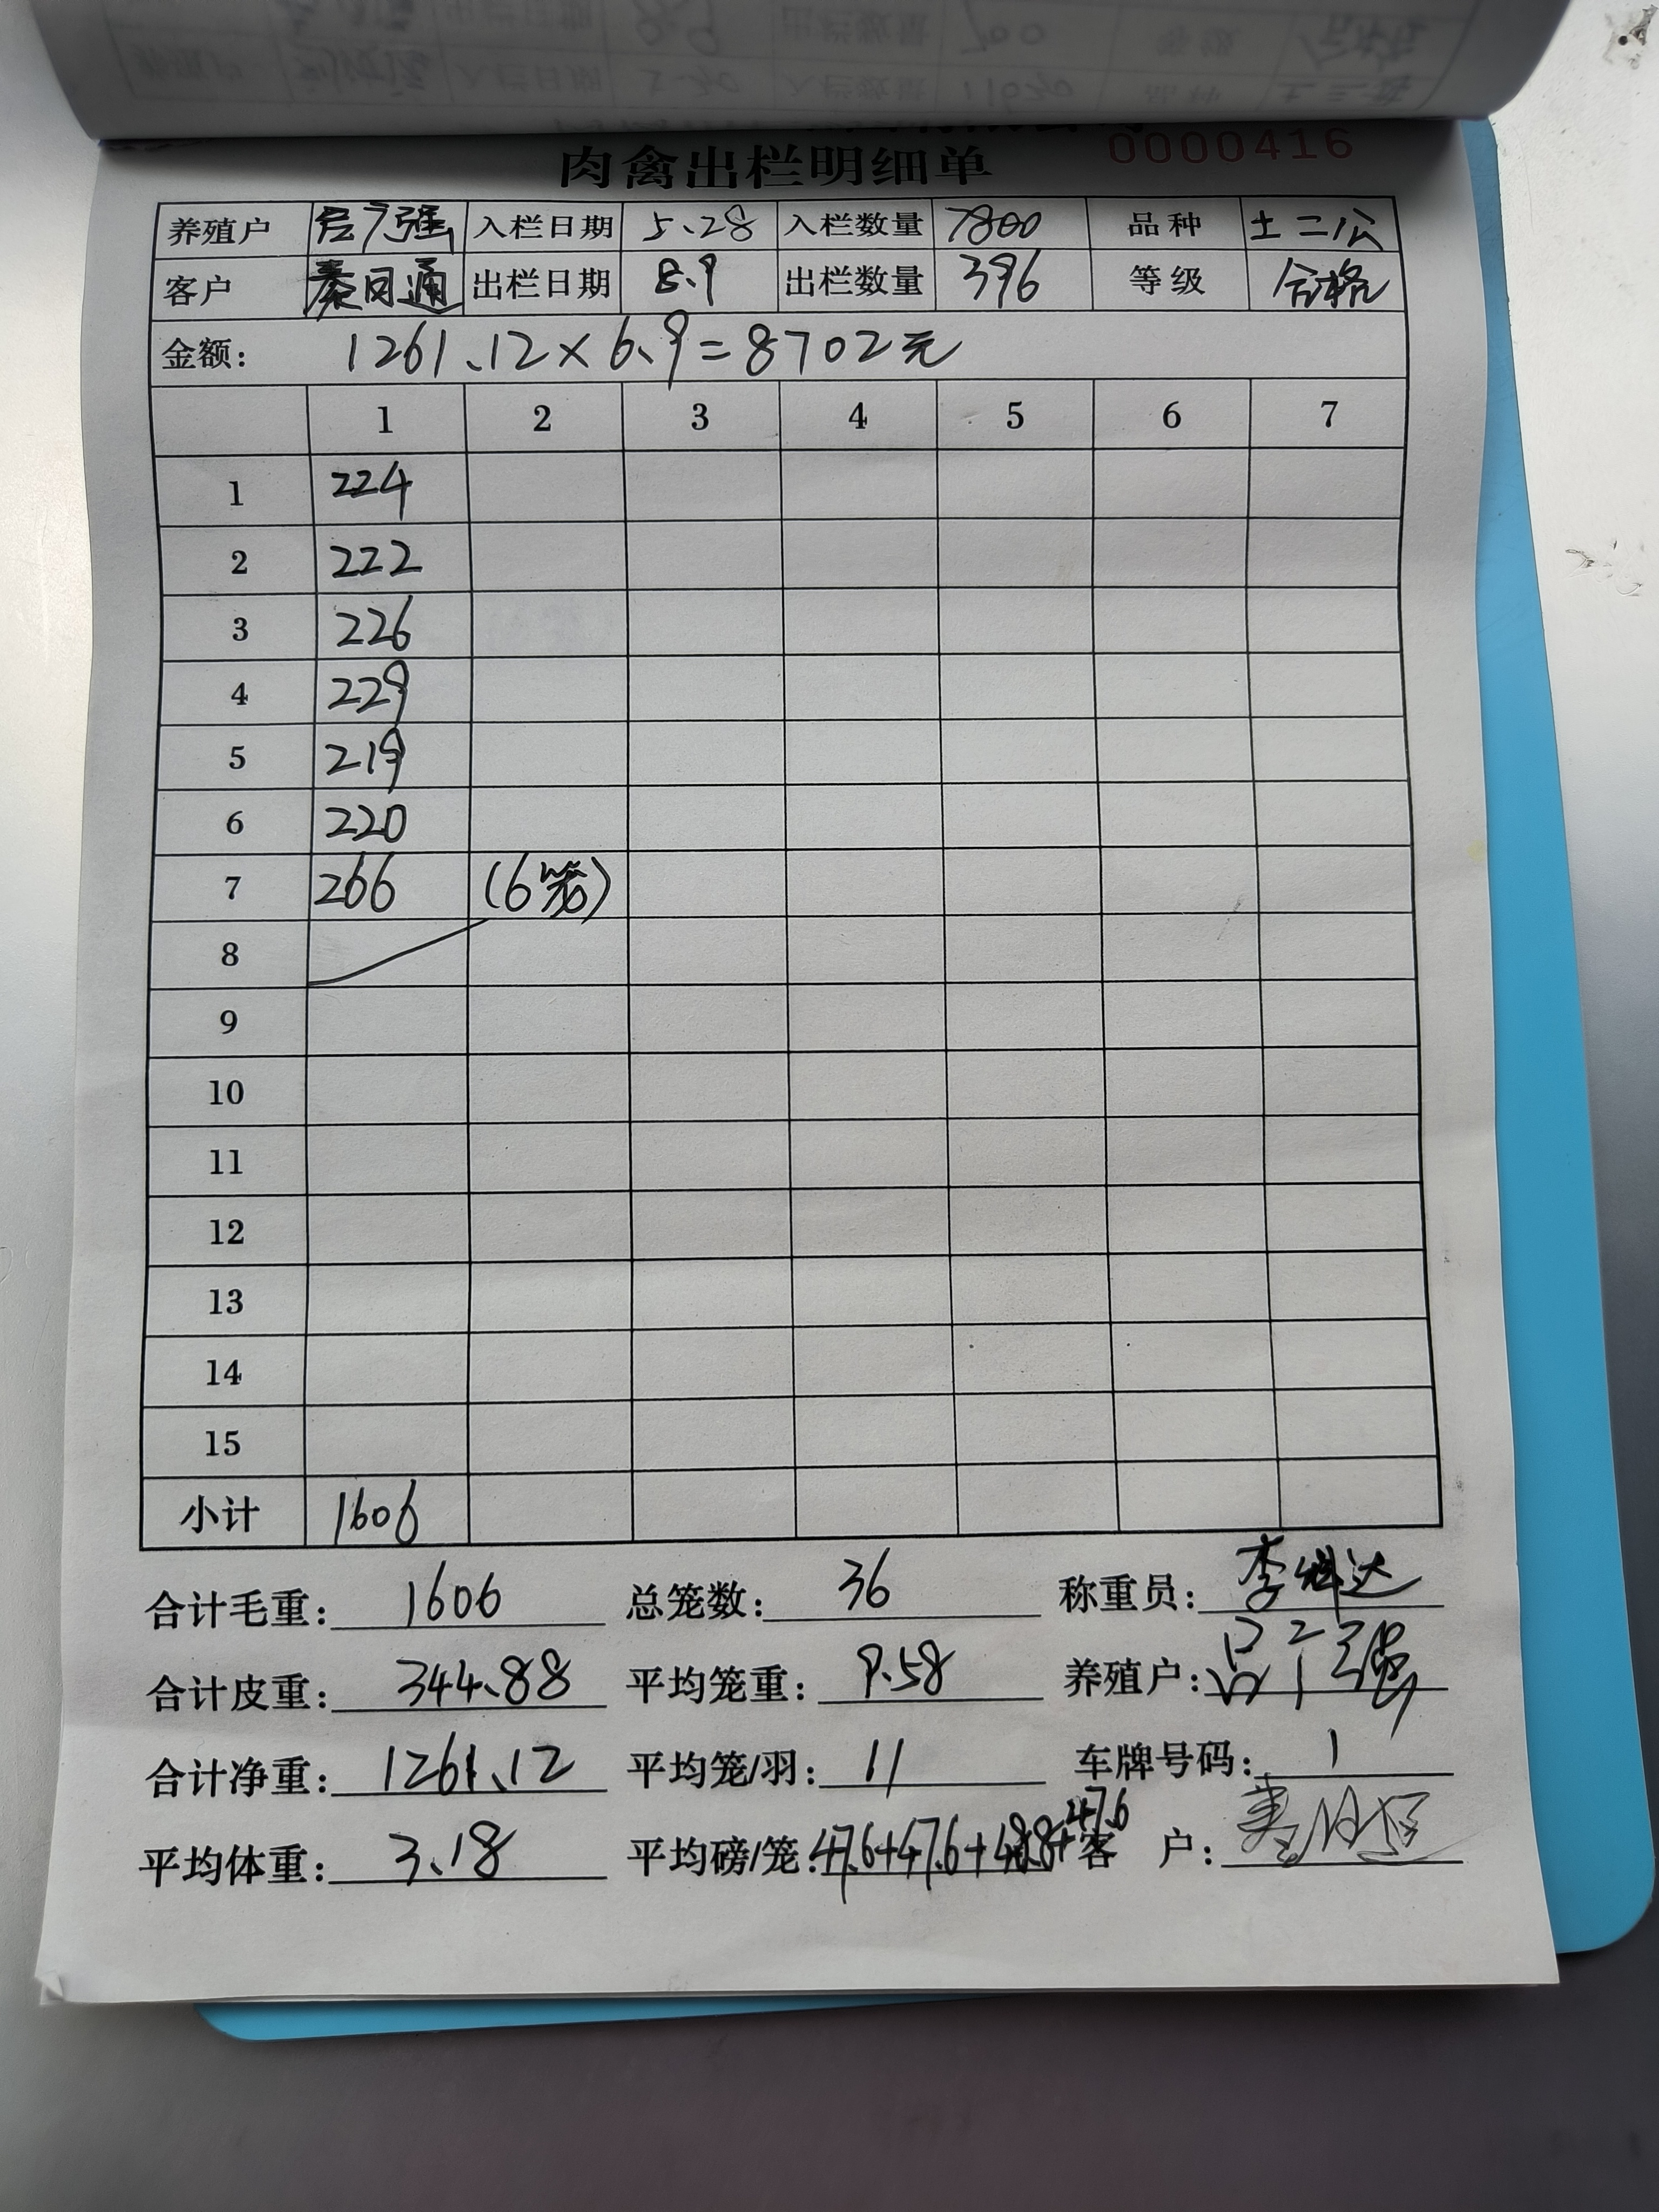 0000416
肉禽出栏明细单
养殖户 吕广强 入栏日期 5.28 入栏数量 7800 品种 土二公
客户 秦日通 出栏日期 8.9 出栏数量 396 等级 合格
金额: 1261.12×6.9=8702元
1 2 3 4 5 6 7
1 224
2 222
3 226
4 229
5 219
6 220
7 266 (6笼)
8
9
10
11
12
13
14
15
小计 1606
合计毛重: 1606 总笼数: 36 称重员: 李
合计皮重: 344.88 平均笼重: 9.58 养殖户: 吕广强
合计净重: 1261.12 平均笼/羽: 11 车牌号码: 1
平均体重: 3.18 平均磅/笼: 47.6+47.6+48.8+47.6 客 户: